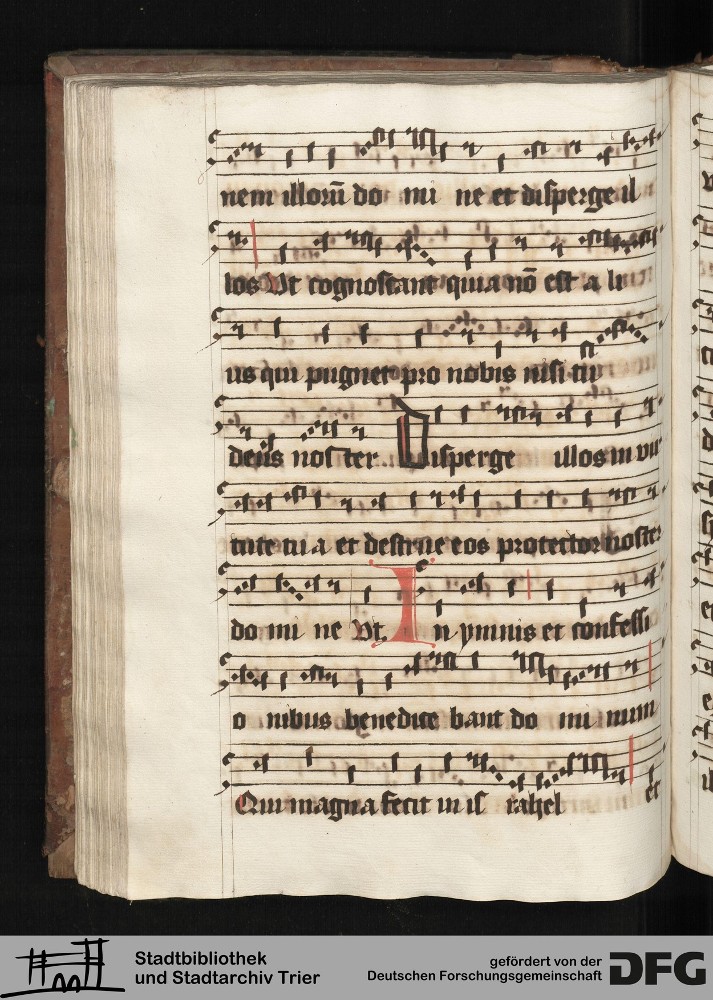 nem illorū do mi ne et disperge il
los Ut cognoscant quia nō est a li
us qui pugnet pro nobis nisi tu
deus nos ter Disperge illos in vir
tute tu a et destrue eos protector noster
do mi ne Ut In ymnis et confessi
o nibus benedice bant do mi num
Qui magna fecit in is rahel et
Stadtbibliothek
und Stadtarchiv Trier
gefördert von der
Deutschen Forschungsgemeinschaft
DFG